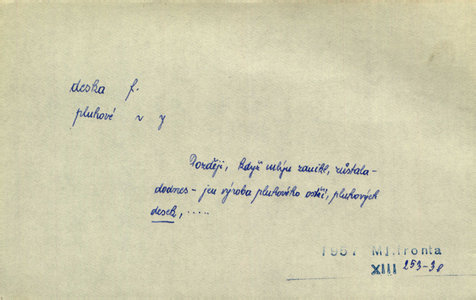 deska f.
pluhové v y
Později, když mlýn zanikl, zůstala -
dodnes - jen výroba pluhového ostří, pluhových
desek, .....
1957 Ml. fronta
XIII 253-38